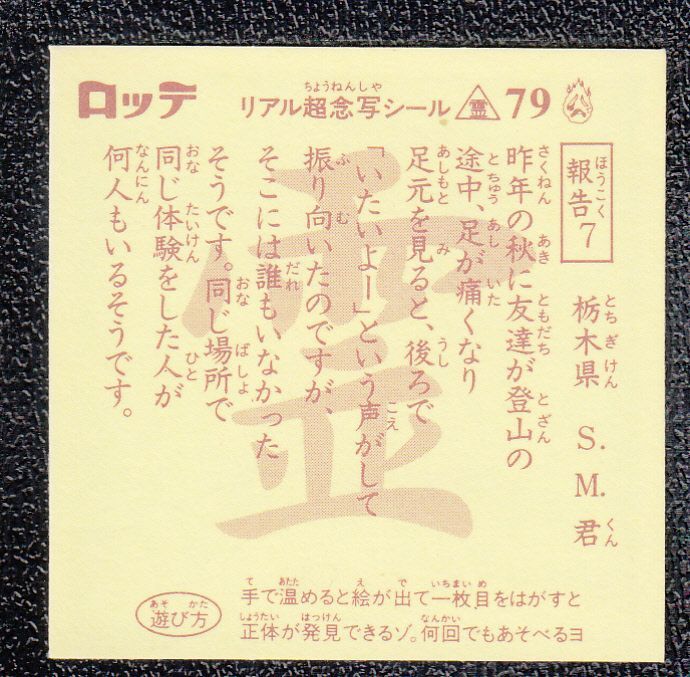 ロッテ
リアル超念写シール 霊 79
報告7
栃木県 S.M.君
昨年の秋に友達が登山の
途中、足が痛くなり
足元を見ると、後ろで
「いたいよー」という声がして
振り向いたのですが、
そこには誰もいなかった
そうです。同じ場所で
同じ体験をした人が
何人もいるそうです。
霊
遊び方
手で温めると絵が出て一枚目をはがすと
正体が発見できるゾ。何回でもあそべるヨ